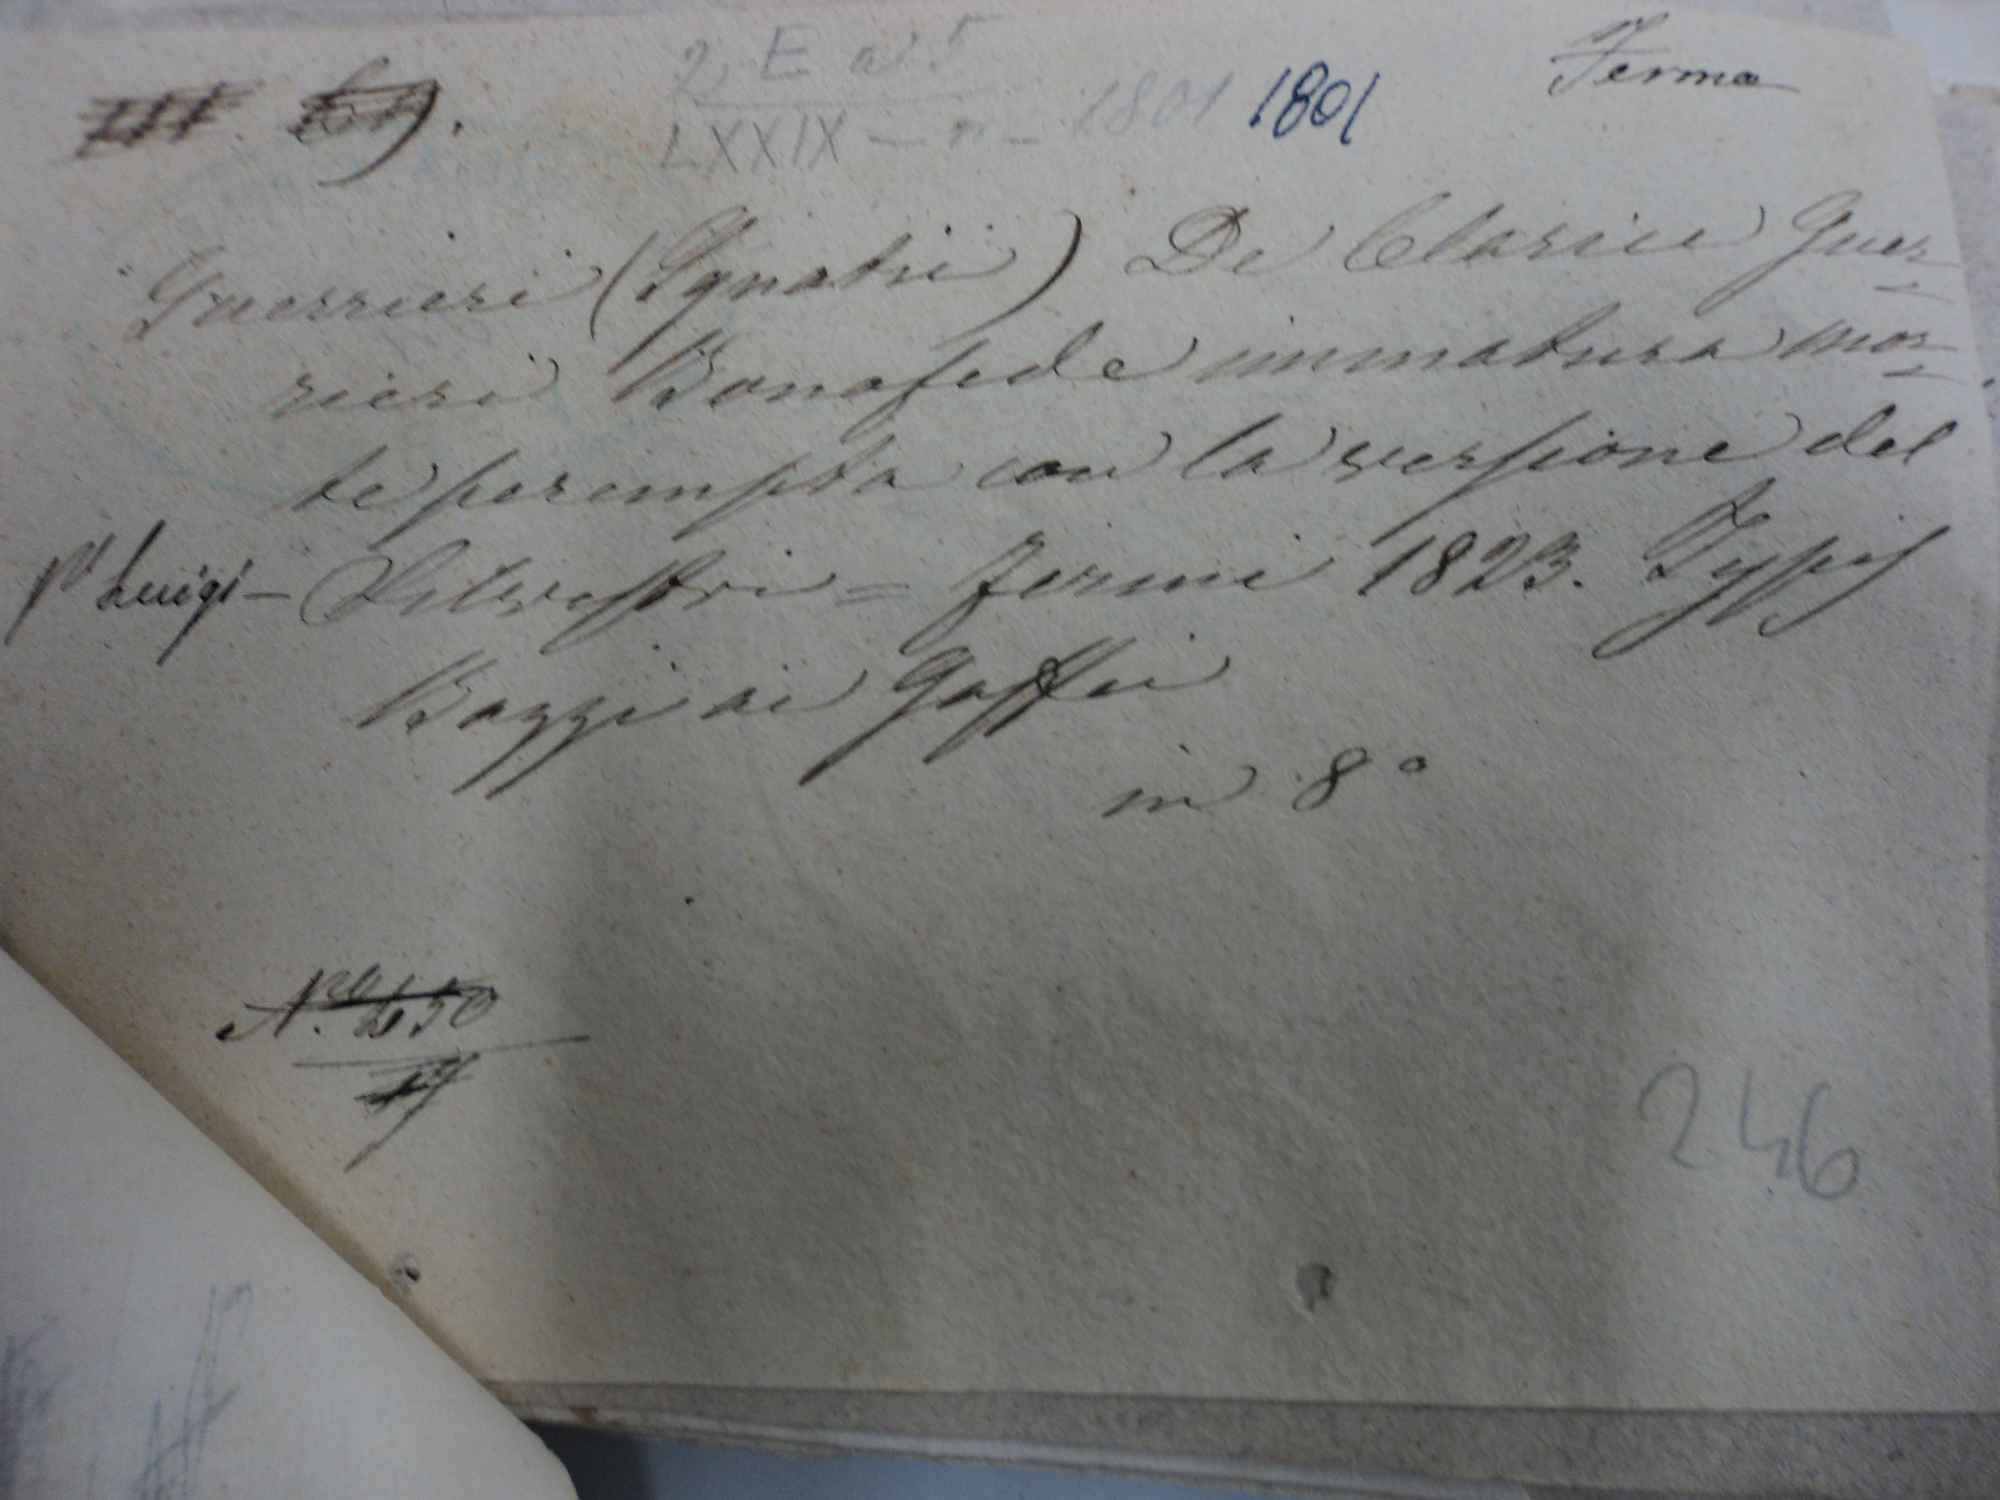 2, E a 5
LXXIX - n - 1801 1801
Fermo
Guerrieri (Ignatii) De Clarice Guer-
rieri Bonafede immatura mor-
te perempta con la versione del
Pe Luigi - Silvestri = Firmi 1823. Typis
Bazzi ai Gaffei
in 8°
246